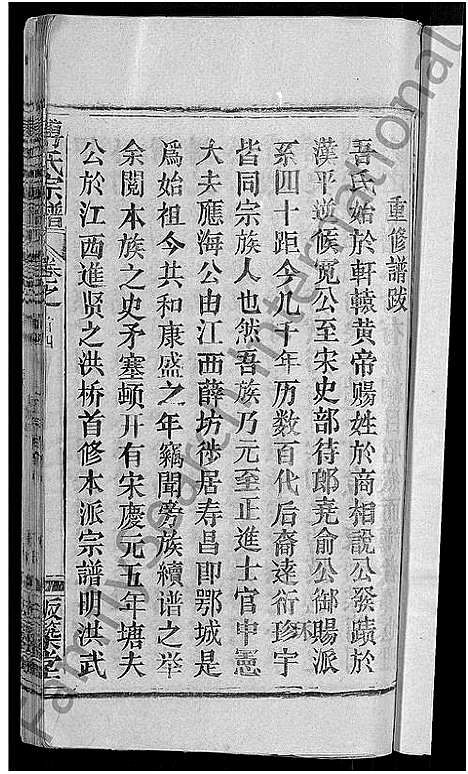 重修譜跋
吾氏始於軒轅黃帝賜姓於商相說公發蹟於
漢平逆候寬公至宋史部待郎堯俞公御賜派
系四十距今几千年历数百代后裔逺衍環珍宇
皆同宗族人也然吾族乃元至正進士官中憲
大夫應海公由江西薛坊徙居寿昌即鄂城是
為始祖今共和康盛之年竊聞旁族續谱之举
余閱本族之史矛塞頓开有宋慶元五年塘夫
公於江西進贤之洪桥首修本派宗譜明洪武
氏宗譜
卷之
版築堂
FamilySearch International